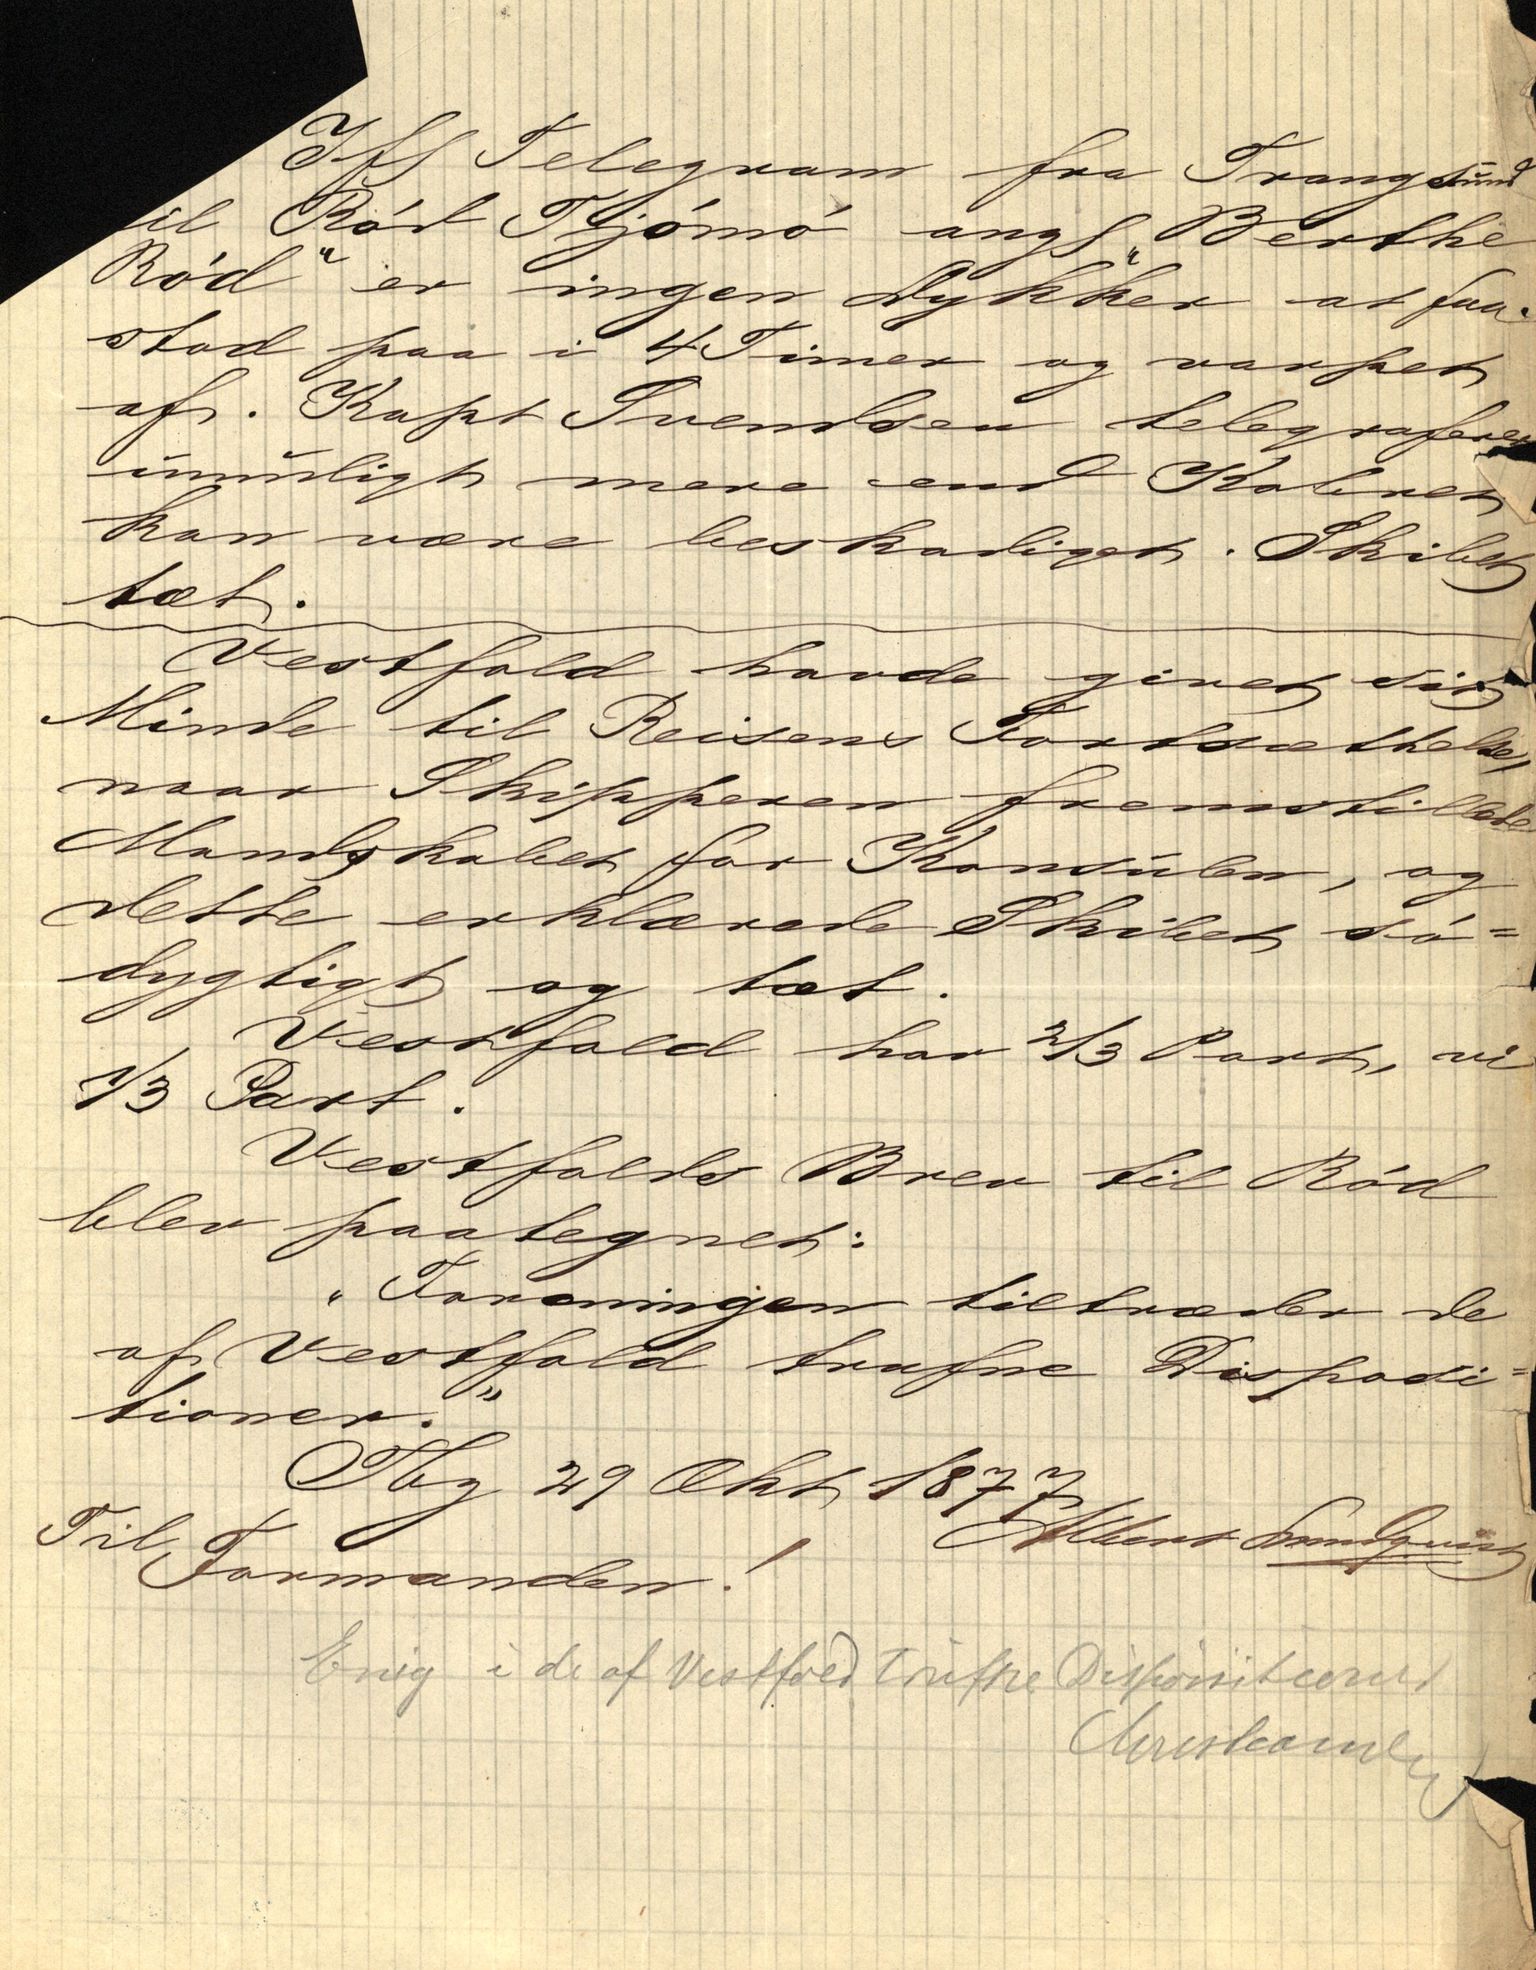 Ifg Telegram fra Trangsund
til Rød Tjømø angf „Berthe
Rød" er ingen Dykker at faa.
stod paa i 4 Timer og varpet
af. Kapt Svendsen telegraferer
umuligt mere end Kobret
kan være beskadiget. Skibet
tæt.
Vestfold havde givet sit
Minde til Reisens Fortsættelse,
naar Skipperen fremstillede
Mandskabet for Konsulen, og
dette erklærede Skibet sø=
dygtigt og tæt.
Vestfold har 2/3 Part, vi
1/3 Part.
Vestfolds Brev til Rød
blev paategnet:
„Foreningen tiltræder de
af Vestfold trufne Disposi=
tioner."
Tbg 29 Okt 1877
Albert
Til Formanden!
Enig i de af Vestfold trufne Dispositioner